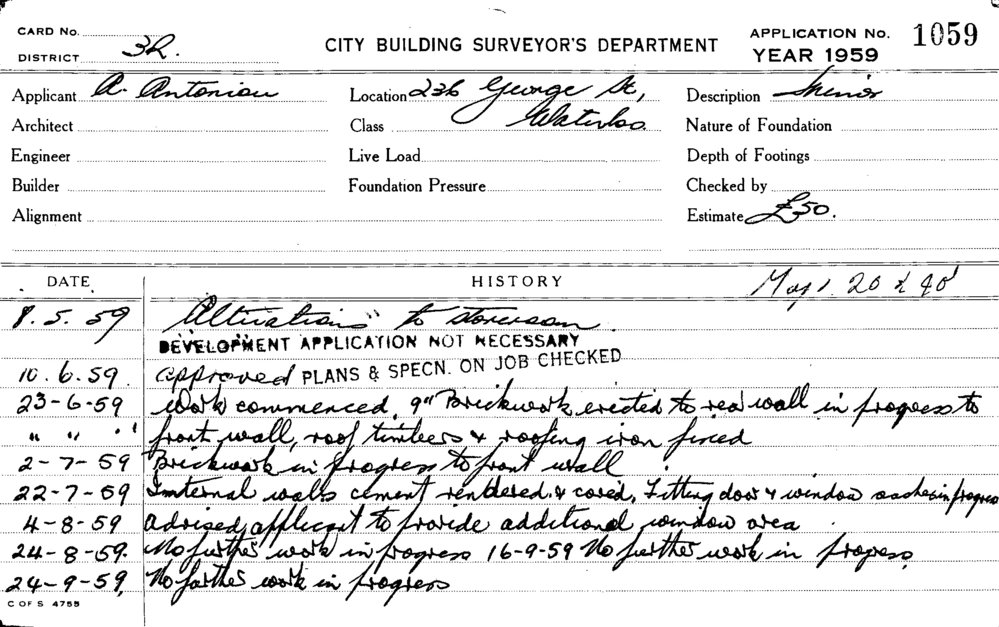 CARD No.
DISTRICT 3R.
CITY BUILDING SURVEYOR'S DEPARTMENT
APPLICATION No. 1059
YEAR 1959
Applicant A. Antoniou Location 236 George St, Description Minor
Architect Class Waterloo Nature of Foundation
Engineer Live Load Depth of Footings
Builder Foundation Pressure Checked by
Alignment Estimate £50.
DATE HISTORY 20 x 90'
8. 5. 59 Alterations to storeroom
DEVELOPMENT APPLICATION NOT NECESSARY
10. 6. 59. approved PLANS & SPECN. ON JOB CHECKED
23-6-59 Work commenced. 9" Brickwork erected to rear wall in progress to
" " " front wall, roof timbers & roofing iron fixed
2-7-59 Brickwork in progress to front wall.
22-7-59 Internal walls cement rendered & coved. Fitting door & window sashes in progress
4-8-59 Advised applicant to provide additional window area
24-8-59. No further work in progress 16-9-59 No further work in progress.
24-9-59, No further work in progress
C OF S 4755